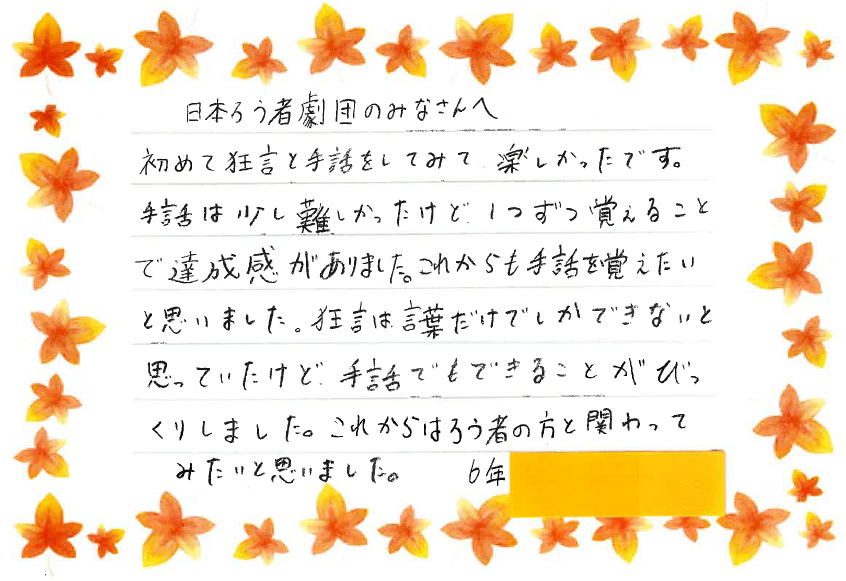 日本ろう者劇団のみなさんへ
初めて狂言と手話をしてみて、楽しかったです。
手話は少し難しかったけど、1つずつ覚えること
で達成感がありました。これからも手話を覚えたい
と思いました。狂言は言葉だけでしかできないと
思っていたけど、手話でもできることがびっ
くりしました。これからはろう者の方と関わって
みたいと思いました。 6年